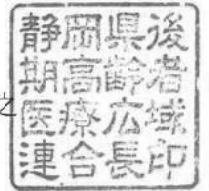 静岡県後
期高齢者
医療広域
連合長印
之